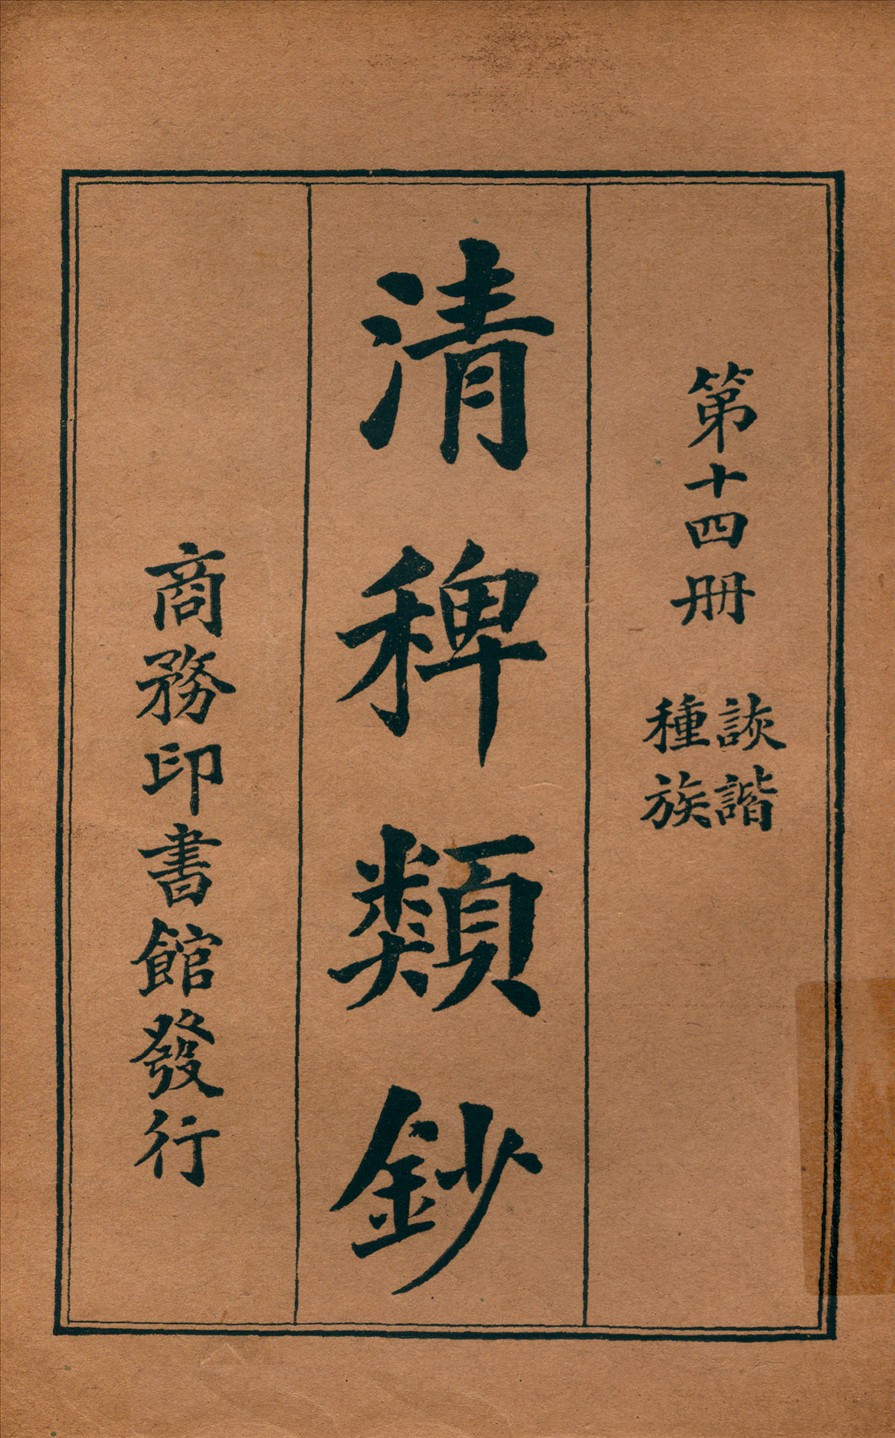 第十四册
詼諧
種族
清稗類鈔
商務印書館發行